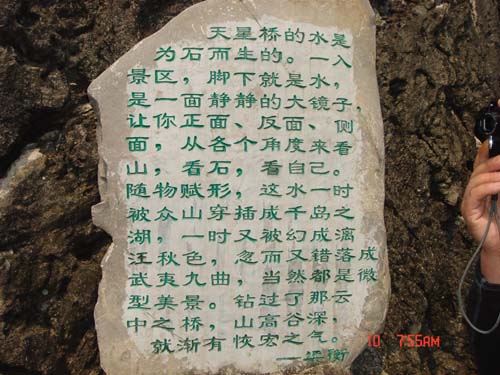 天星桥的水是
为石而生的。一入
景区，脚下就是水，
是一面静静的大镜子，
让你正面、反面、侧
面，从各个角度来看
山，看石，看自己。
随物赋形，这水一时
被众山穿插成千岛之
湖，一时又被幻成漓
江秋色，忽而又错落成
武夷九曲，当然都是微
型美景。钻过了那云
中之桥，山高谷深，
就渐有恢宏之气。
——平衡
10 7:55AM